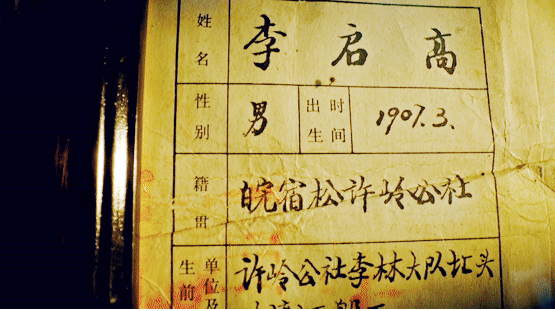 姓名 李启高
性别 男 出生时间 1907.3.
籍贯 皖宿松许岭公社
生前单位及 许岭公社李林大队圩头